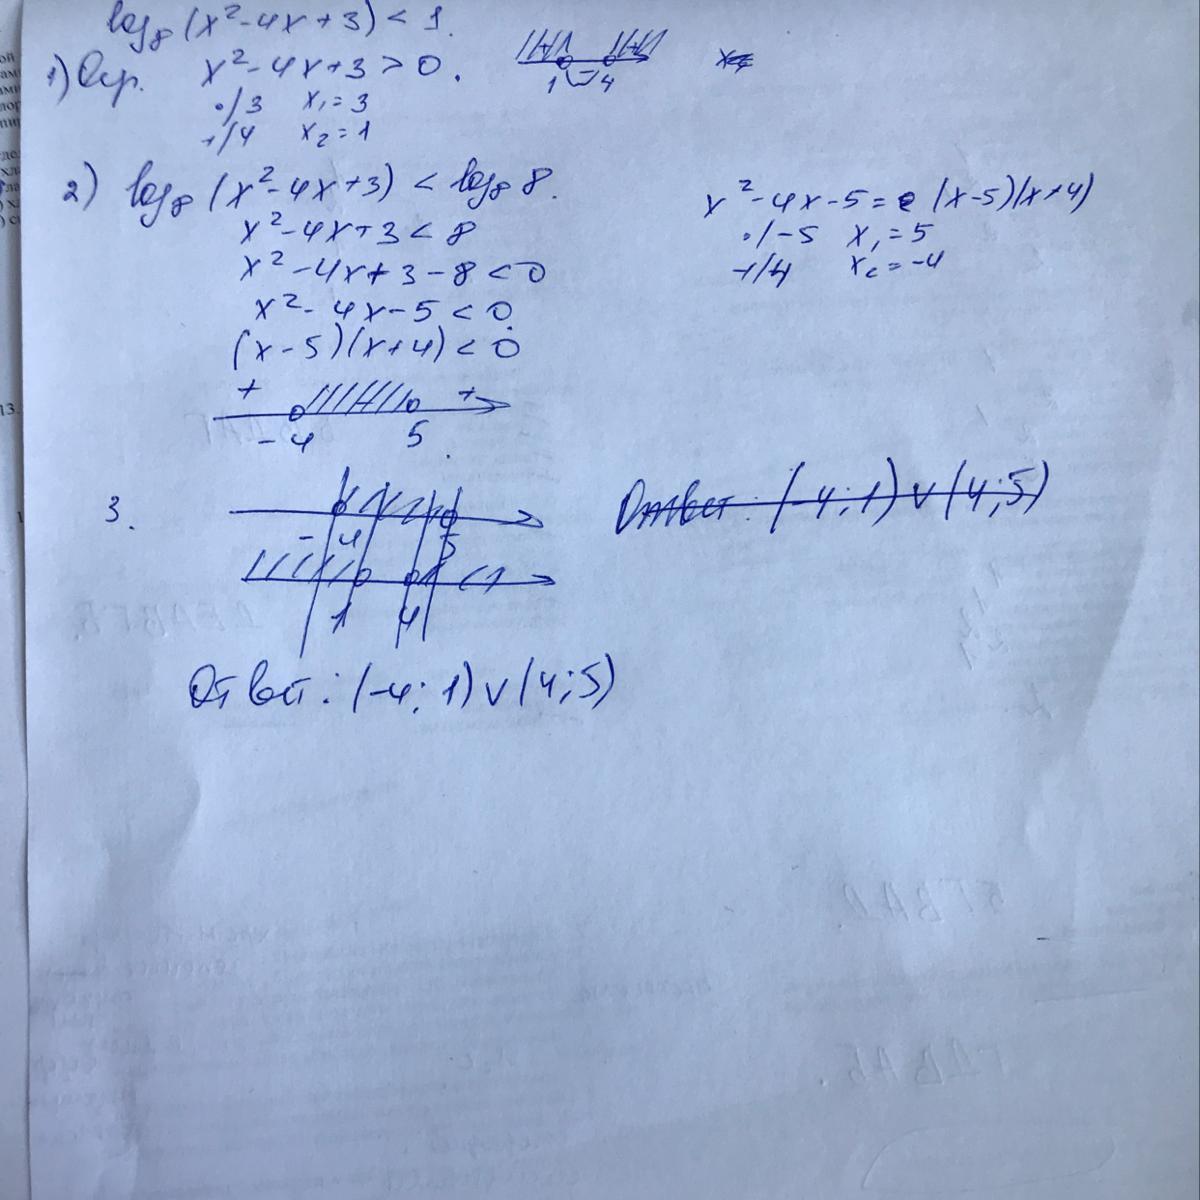 log₈(x²-4x+3) < 1.
1) Огр. x²-4x+3 > 0.
1 - 4
•/3 x₁=3
+/4 x₂=1
2) log₈(x²-4x+3) < log₈8.
x²-4x+3 < 8
x²-4x+3-8 < 0
x²-4x-5 < 0
(x-5)(x+4) < 0
+ +
-4 5
x²-4x-5 = (x-5)(x+4)
•/-5 x₁=5
+/4 x₂=-4
3.
-4 5
1 4
Ответ: (-4;1)∨(4;5)
Ответ: (-4;1)∨(4;5)